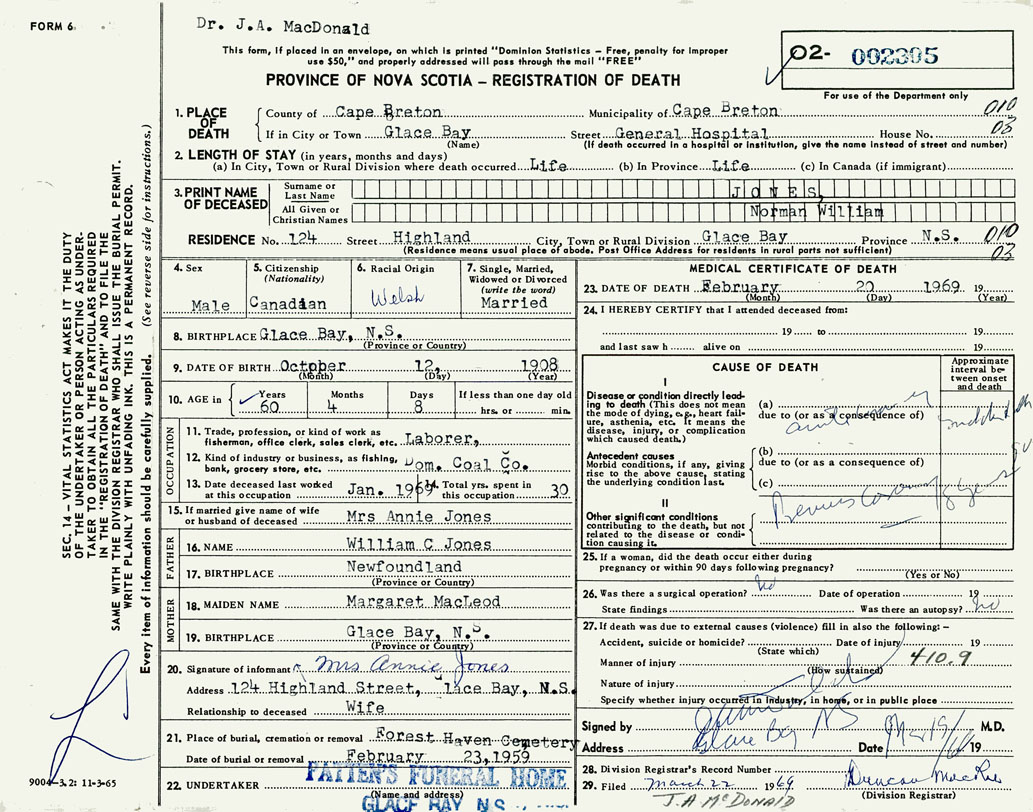 FORM 6
Dr. J.A. MacDonald
This form, if placed in an envelope, on which is printed "Dominion Statistics – Free, penalty for improper
use $50," and properly addressed will pass through the mail "FREE"
PROVINCE OF NOVA SCOTIA – REGISTRATION OF DEATH
02- 002305
For use of the Department only
SEC. 14 – VITAL STATISTICS ACT MAKES IT THE DUTY
OF THE UNDERTAKER OR PERSON ACTING AS UNDER-
TAKER TO OBTAIN ALL THE PARTICULARS REQUIRED
IN THE "REGISTRATION OF DEATH" AND TO FILE THE
SAME WITH THE DIVISION REGISTRAR WHO SHALL ISSUE THE BURIAL PERMIT.
WRITE PLAINLY WITH UNFADING INK. THIS IS A PERMANENT RECORD.
Every item of information should be carefully supplied. (See reverse side for instructions.)
1. PLACE OF DEATH
County of Cape Breton Municipality of Cape Breton 010
If in City or Town Glace Bay Street General Hospital House No. 03
(Name) (If death occurred in a hospital or institution, give the name instead of street and number)
2. LENGTH OF STAY (in years, months and days)
(a) In City, Town or Rural Division where death occurred Life (b) In Province Life (c) In Canada (if immigrant)
3. PRINT NAME OF DECEASED
Surname or Last Name JONES,
All Given or Christian Names Norman William
RESIDENCE No. 124 Street Highland City, Town or Rural Division Glace Bay Province N.S. 010
(Residence means usual place of abode. Post Office Address for residents in rural parts not sufficient) 03
4. Sex Male
5. Citizenship (Nationality) Canadian
6. Racial Origin Welsh
7. Single, Married, Widowed or Divorced (write the word) Married
8. BIRTHPLACE Glace Bay, N.S.
(Province or Country)
9. DATE OF BIRTH October 12, 1908
(Month) (Day) (Year)
10. AGE in Years 60 Months 4 Days 8 If less than one day old hrs. or min.
OCCUPATION
11. Trade, profession or kind of work as
fisherman, office clerk, sales clerk, etc. Laborer,
12. Kind of industry or business, as fishing,
bank, grocery store, etc. Dom. Coal Co.
13. Date deceased last worked
at this occupation Jan. 1969
14. Total yrs. spent in
this occupation 30
15. If married give name of wife
or husband of deceased Mrs Annie Jones
FATHER
16. NAME William C Jones
17. BIRTHPLACE Newfoundland
(Province or Country)
MOTHER
18. MAIDEN NAME Margaret MacLeod
19. BIRTHPLACE Glace Bay, N.S.
(Province or Country)
20. Signature of informant Mrs Annie Jones
Address 124 Highland Street, lace Bay, N.S.
Relationship to deceased Wife
21. Place of burial, cremation or removal Forest Haven Cemetery
Date of burial or removal February 23,1959
22. UNDERTAKER PATTEN'S FUNERAL HOME
(Name and address)
GLACE BAY N.S.
9004-3.2: 11-3-65
MEDICAL CERTIFICATE OF DEATH
23. DATE OF DEATH February 20 1969 19
(Month) (Day) (Year)
24. I HEREBY CERTIFY that I attended deceased from:
19 to 19
and last saw h alive on 19
CAUSE OF DEATH
Approximate interval between onset and death
I
Disease or condition directly lead-
ing to death (This does not mean
the mode of dying, e.g., heart fail-
ure, asthenia, etc. It means the
disease, injury, or complication
which caused death.)
(a)
due to (or as a consequence of)
Antecedent causes
Morbid conditions, if any, giving
rise to the above cause, stating
the underlying condition last.
(b)
due to (or as a consequence of)
(c)
II
Other significant conditions
contributing to the death, but not
related to the disease or condi-
tion causing it.
25. If a woman, did the death occur either during
pregnancy or within 90 days following pregnancy?
(Yes or No)
26. Was there a surgical operation? No Date of operation 19
State findings Was there an autopsy? No
27. If death was due to external causes (violence) fill in also the following:–
Accident, suicide or homicide? Date of injury 19
(State which)
Manner of injury 410.9
(How sustained)
Nature of injury
Specify whether injury occurred in industry, in home, or in public place
Signed by M.D.
Address Glace Bay NS Date 19
28. Division Registrar's Record Number
29. Filed March 22 1969
J.A McDONALD
(Division Registrar)